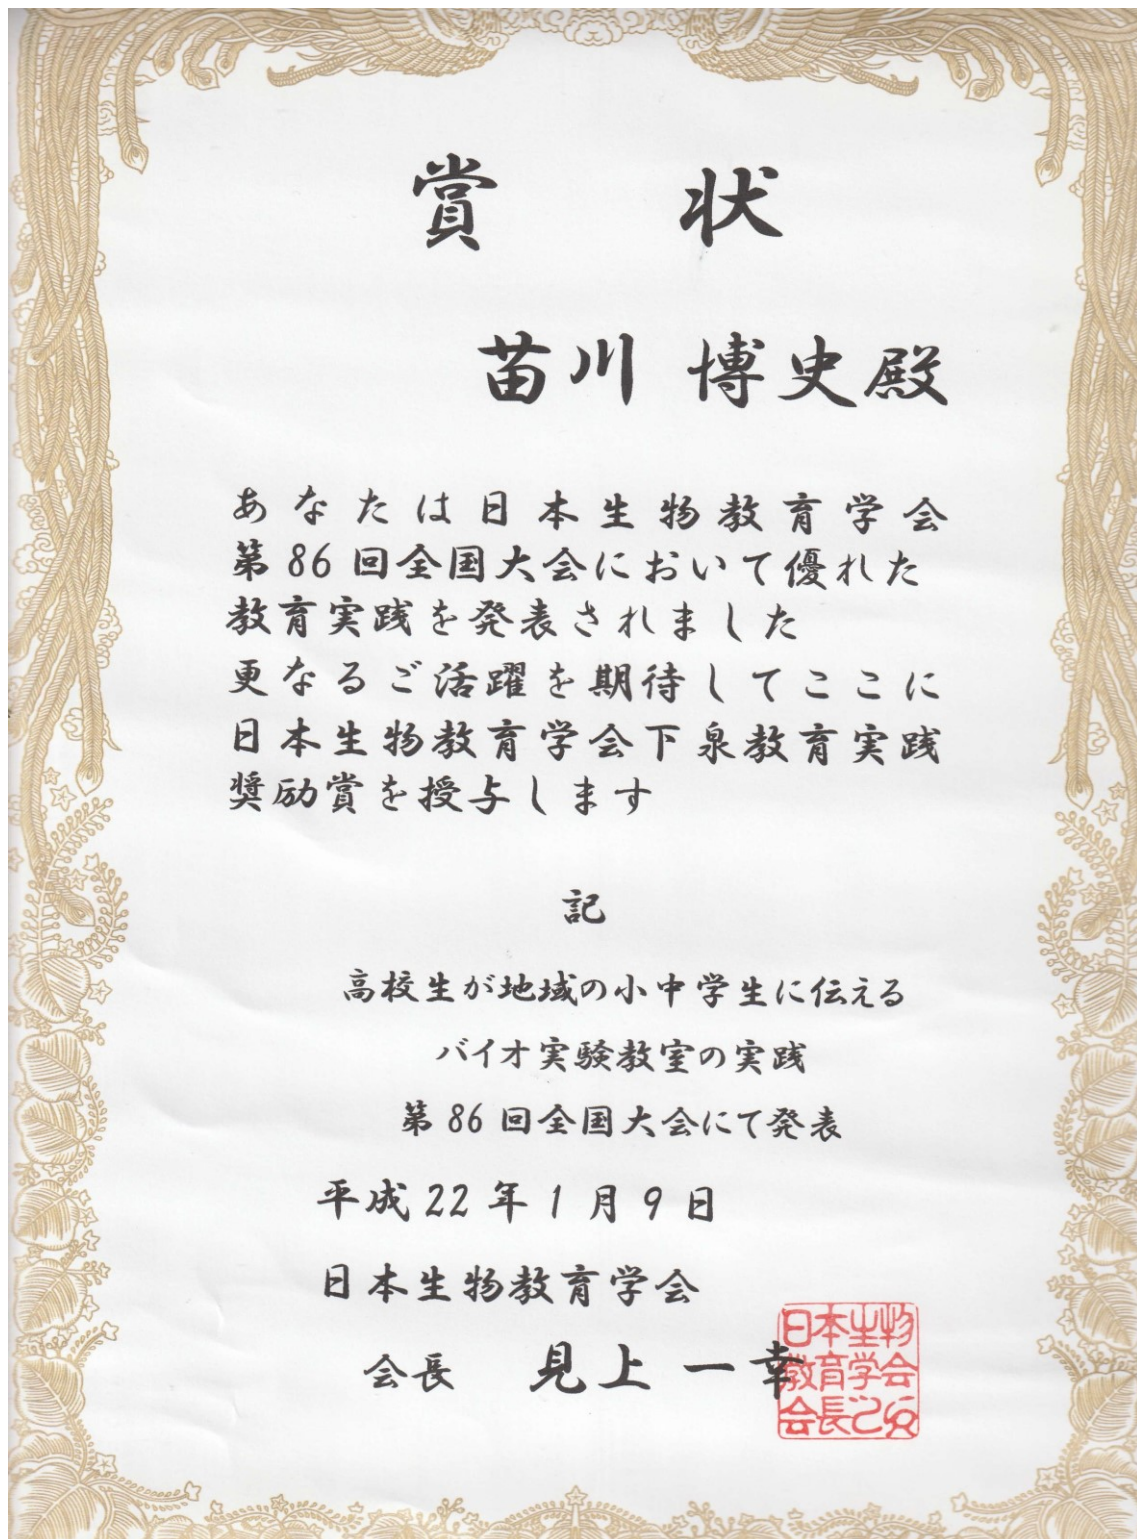 賞 状
苗川 博史殿
あなたは日本生物教育学会
第86回全国大会において優れた
教育実践を発表されました
更なるご活躍を期待してここに
日本生物教育学会下泉教育実践
奨励賞を授与します
記
高校生が地域の小中学生に伝える
バイオ実験教室の実践
第86回全国大会にて発表
平成22年1月9日
日本生物教育学会
会長 見上 一幸
日本生物
教育学会
会長之印